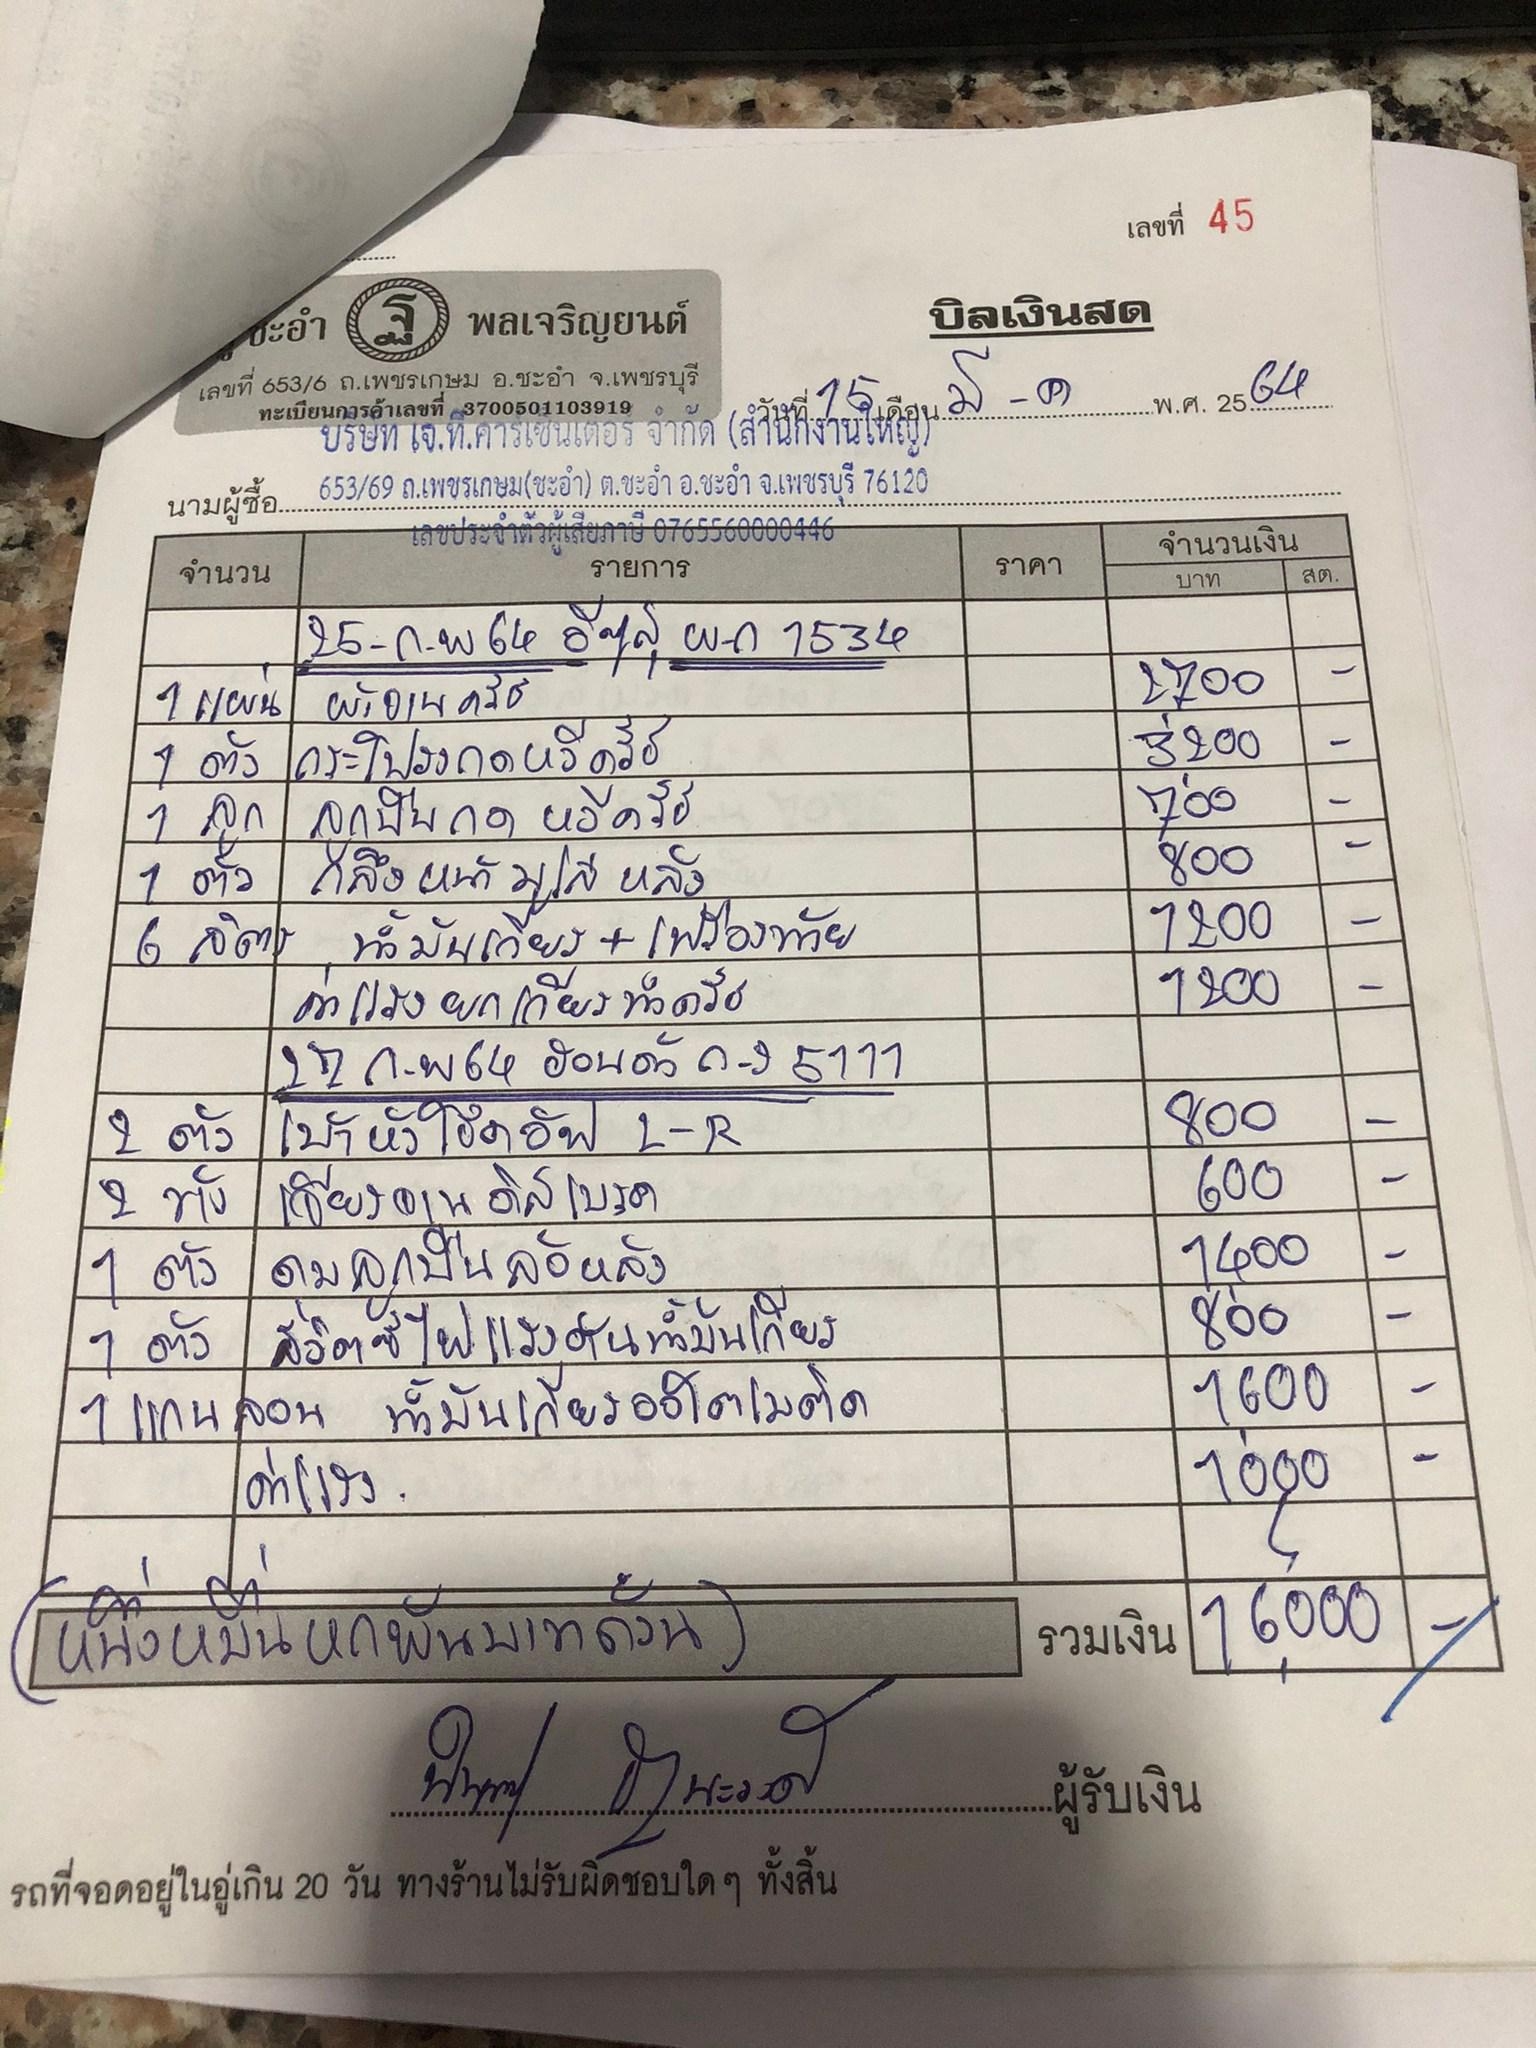 เลขที่ 45
ชะอำ ฐ พลเจริญยนต์
บิลเงินสด
เลขที่ 653/6 ถ.เพชรเกษม อ.ชะอำ จ.เพชรบุรี
ทะเบียนการค้าเลขที่ 3700501103919
วันที่ 15 เดือน มี-ค พ.ศ. 2564
บริษัท เจ.ที.คาร์เซ็นเตอร์ จำกัด (สำนักงานใหญ่)
653/69 ถ.เพชรเกษม(ชะอำ) ต.ชะอำ อ.ชะอำ จ.เพชรบุรี 76120
นามผู้ซื้อ
เลขประจำตัวผู้เสียภาษี 0765560000446
จำนวน รายการ ราคา จำนวนเงิน
บาท สต.
25-ก.พ 64 อีซูซุ ผ-ก 1534
1 แผ่น ผ้าจานครัช 2700 -
1 ตัว กระโปรงกดหวีครัช 3200 -
1 ลูก ลูกปืนกดหวีครัช 700 -
1 ตัว กลึงหน้ามูเล่หลัง 800 -
6 ลิตร น้ำมันเกียร+เฟืองท้าย 1200 -
ค่าแรงยกเกียรทำครัช 1200 -
27 ก-พ 64 ฮอนด้า ก-ว 5111
2 ตัว เบ้าหัวโช๊คอัฟ L-R 800 -
2 ข้าง เจียรจานดิสเบรค 600 -
1 ตัว ดุมลูกปืนล้อหลัง 1400 -
1 ตัว สวิตซ์ไฟแรงดันน้ำมันเกียร 800 -
1 แกนลอน น้ำมันเกียรออโตเมติด 1600 -
ค่าแรง. 1000 -
(หนึ่งหมื่นหกพันบาทถ้วน) รวมเงิน 16,000 -
ผู้รับเงิน
รถที่จอดอยู่ในอู่เกิน 20 วัน ทางร้านไม่รับผิดชอบใดๆ ทั้งสิ้น